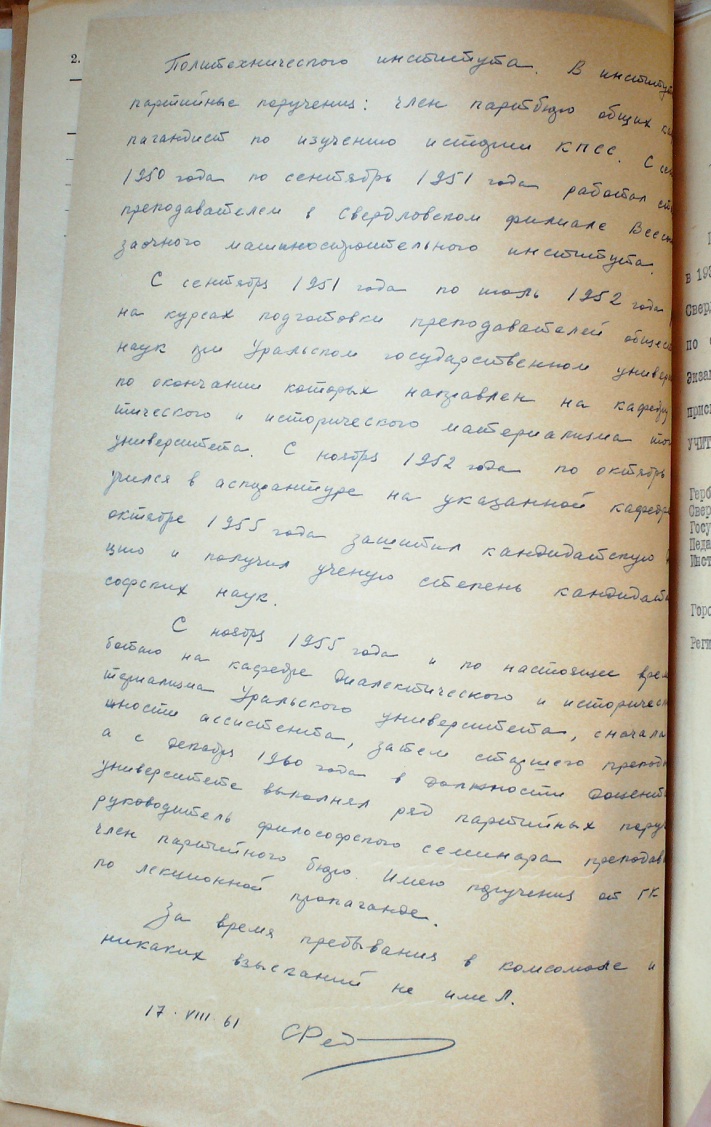 2.
Политехнического института. В институ
партийные поручения: член партбюро общих ка
пагандист по изучению истории КПСС. С се
1950 года по сентябрь 1951 года работал ст
преподавателем в Свердловском филиале Всесо
заочного машиностроительного института.
С сентября 1951 года по июль 1952 года
на курсах подготовки преподавателей общест
наук при Уральском государственном универ
по окончании которых направлен на кафедру
тического и исторического материализма
университета. С ноября 1952 года по октябрь
учился в аспирантуре на указанной кафедре
октябре 1955 года защитил кандидатскую
цию и получил ученую степень кандидата
софских наук.
С ноября 1955 года и по настоящее врем
ботаю на кафедре диалектического и историческ
териализма Уральского университета, сначала
жности ассистента, затем старшего препод
а с декабря 1960 года в должности доцента
университете выполнял ряд партийных пору
руководитель философского семинара преподав
член партийного бюро. Имею поручения от ГК
по лекционной пропаганде.
За время пребывания в комсомоле и
никаких взысканий не имел.
17.VIII.61
в 193
Сверд
по
Экзам
присв
УЧИТ
Герб
Сверд
Госу
Педа
Инст
Горо
Реги